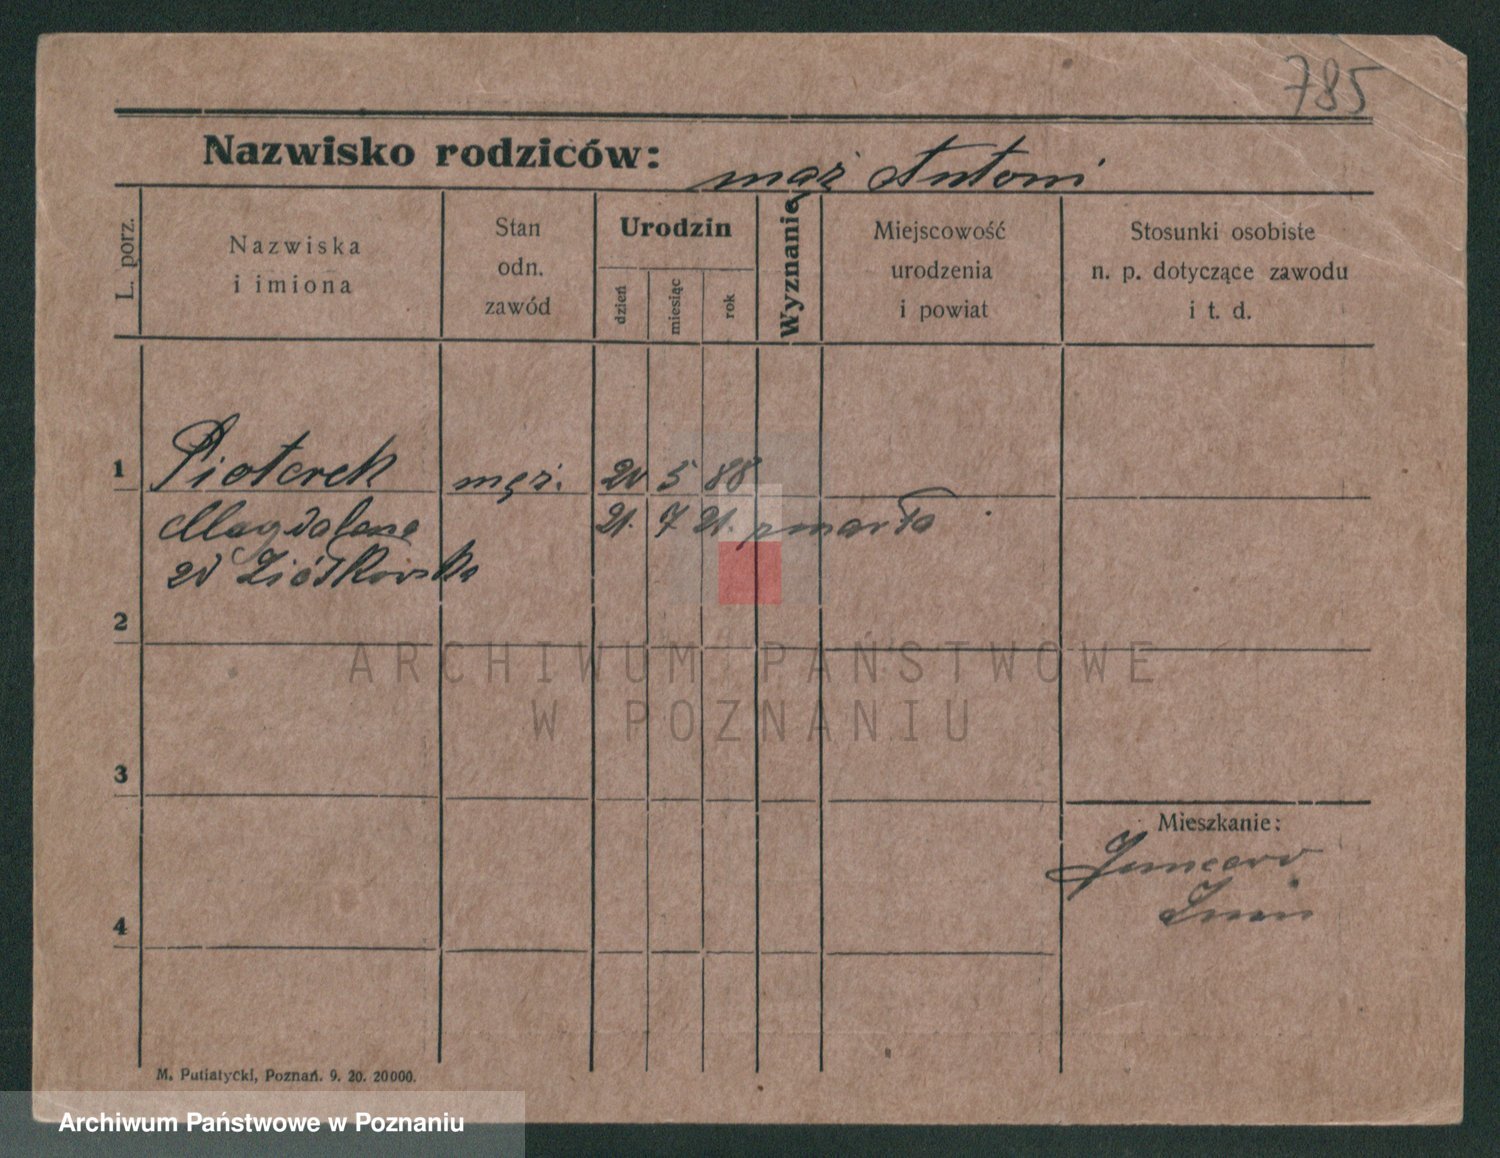 785
Nazwisko rodziców: mąż Antoni
L. porz.
Nazwiska
i imiona
Stan
odn.
zawód
Urodzin
dzień
miesiąc
rok
Wyznanie
Miejscowość
urodzenia
i powiat
Stosunki osobiste
n. p. dotyczące zawodu
i t. d.
1 Pioterek męż. 20 5 88
Magdalena 21. 7 21. zmarła
zd Ziółkowska
2
ARCHIWUM PAŃSTWOWE
W POZNANIU
3
Mieszkanie:
4
M. Putiatycki, Poznań. 9. 20. 20000.
Archiwum Państwowe w Poznaniu